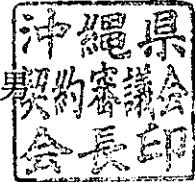 沖縄県
男
契約審議会
会長印